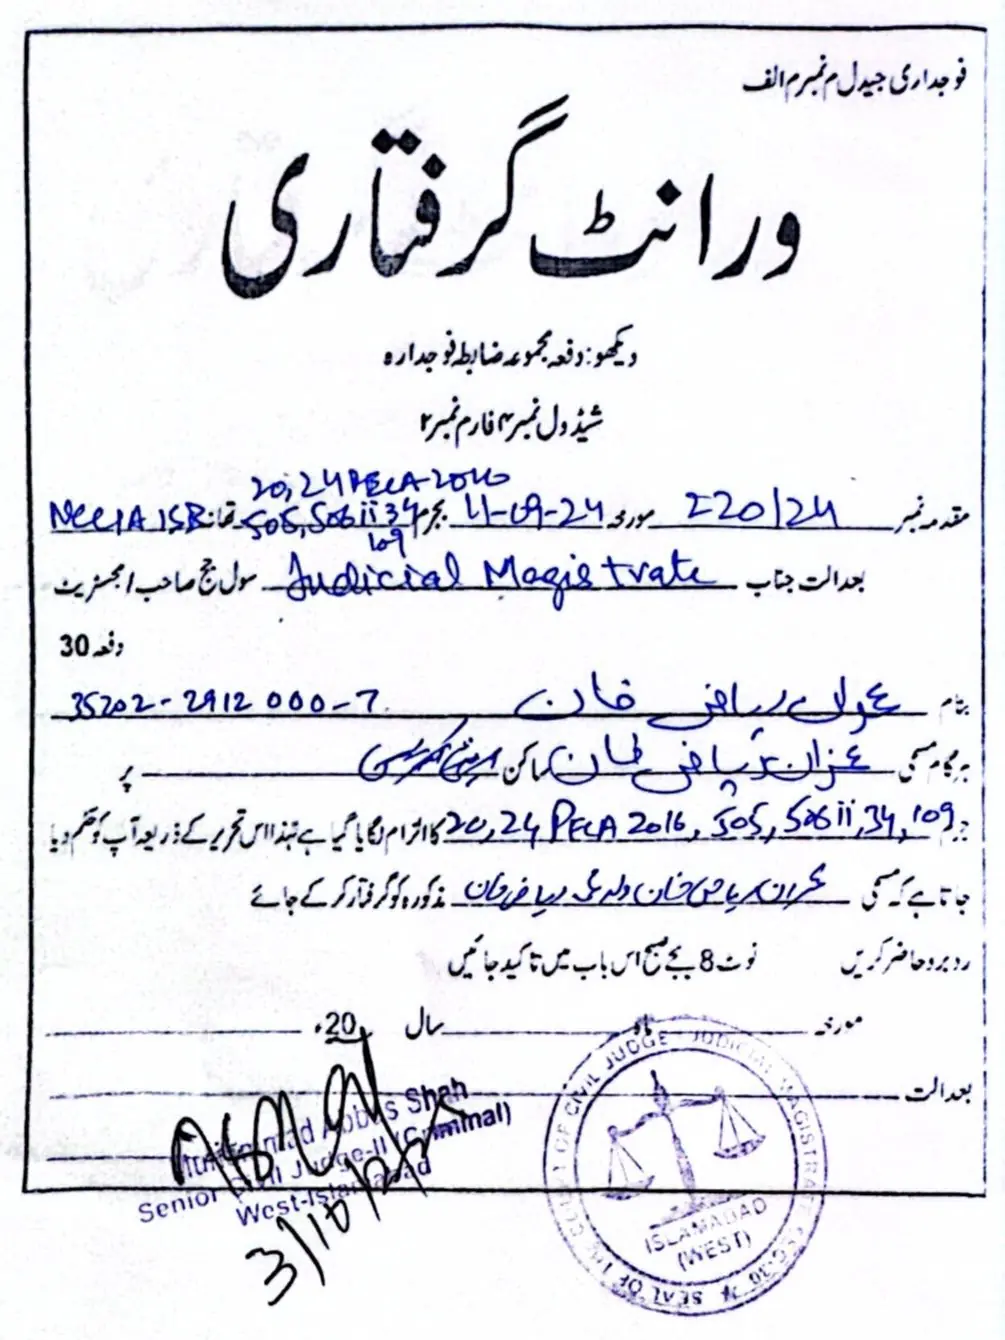 فوجداری جیدل م نمبر م الف
ورانٹ گرفتاری
دیکھو: دفعہ مجموعہ ضابطہ فوجدارہ
شیڈول نمبر ۴ فارم نمبر ۲
20, 24 PECA-2016
مقدمہ نمبر 220/24 مورخہ 11-09-24 بجرم 505, 506 ii 34 تھانہ NCCIA ISB
109
بعدالت جناب Judicial Magistrate سول جج صاحب / مجسٹریٹ
دفعہ 30
بنام عمران ریاض خان 35202-2912000-7
ہرگاہ مسمی عمران ریاض خان ساکن پر
جرم 20, 24 PECA 2016, 505, 506 ii, 34, 109 کا الزام لگایا گیا ہے لہٰذا اس تحریر کے ذریعہ آپ کو حکم دیا
جاتا ہے کہ مسمی عمران ریاض خان ولد ریاض خان مذکورہ کو گرفتار کر کے جائے
روبرو حاضر کریں نوٹ 8 بجے صبح اس باب میں تاکید جانیں
مورخہ ماہ سال 20ء
بعدالت
Muhammad Abbas Shah
Senior Civil Judge-II (Criminal)
West-Islamabad
3/10/25
SEAL OF THE COURT OF CIVIL JUDGE - JUDICIAL MAGISTRATE
ISLAMABAD
(WEST)